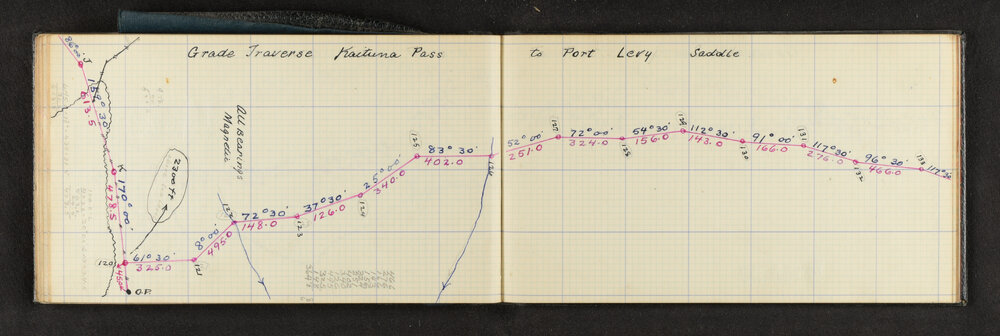 Grade Traverse Kaituna Pass to Port Levy Saddle
86° 00'
J
159° 30'
613.5
K
170° 00'
478.5
2300 ft
All Bearings
Magnetic
120
450.0
O.P.
61° 30'
325.0
121
8° 00'
495.0
122
72° 30'
148.0
123
37° 30'
126.0
124
25° 00'
340.0
125
83° 30'
402.0
126
52° 00'
251.0
127
72° 00'
324.0
128
54° 30'
156.0
129
112° 30'
143.0
130
91° 00'
166.0
131
117° 30'
276.0
132
96° 30'
466.0
133
117° 30'